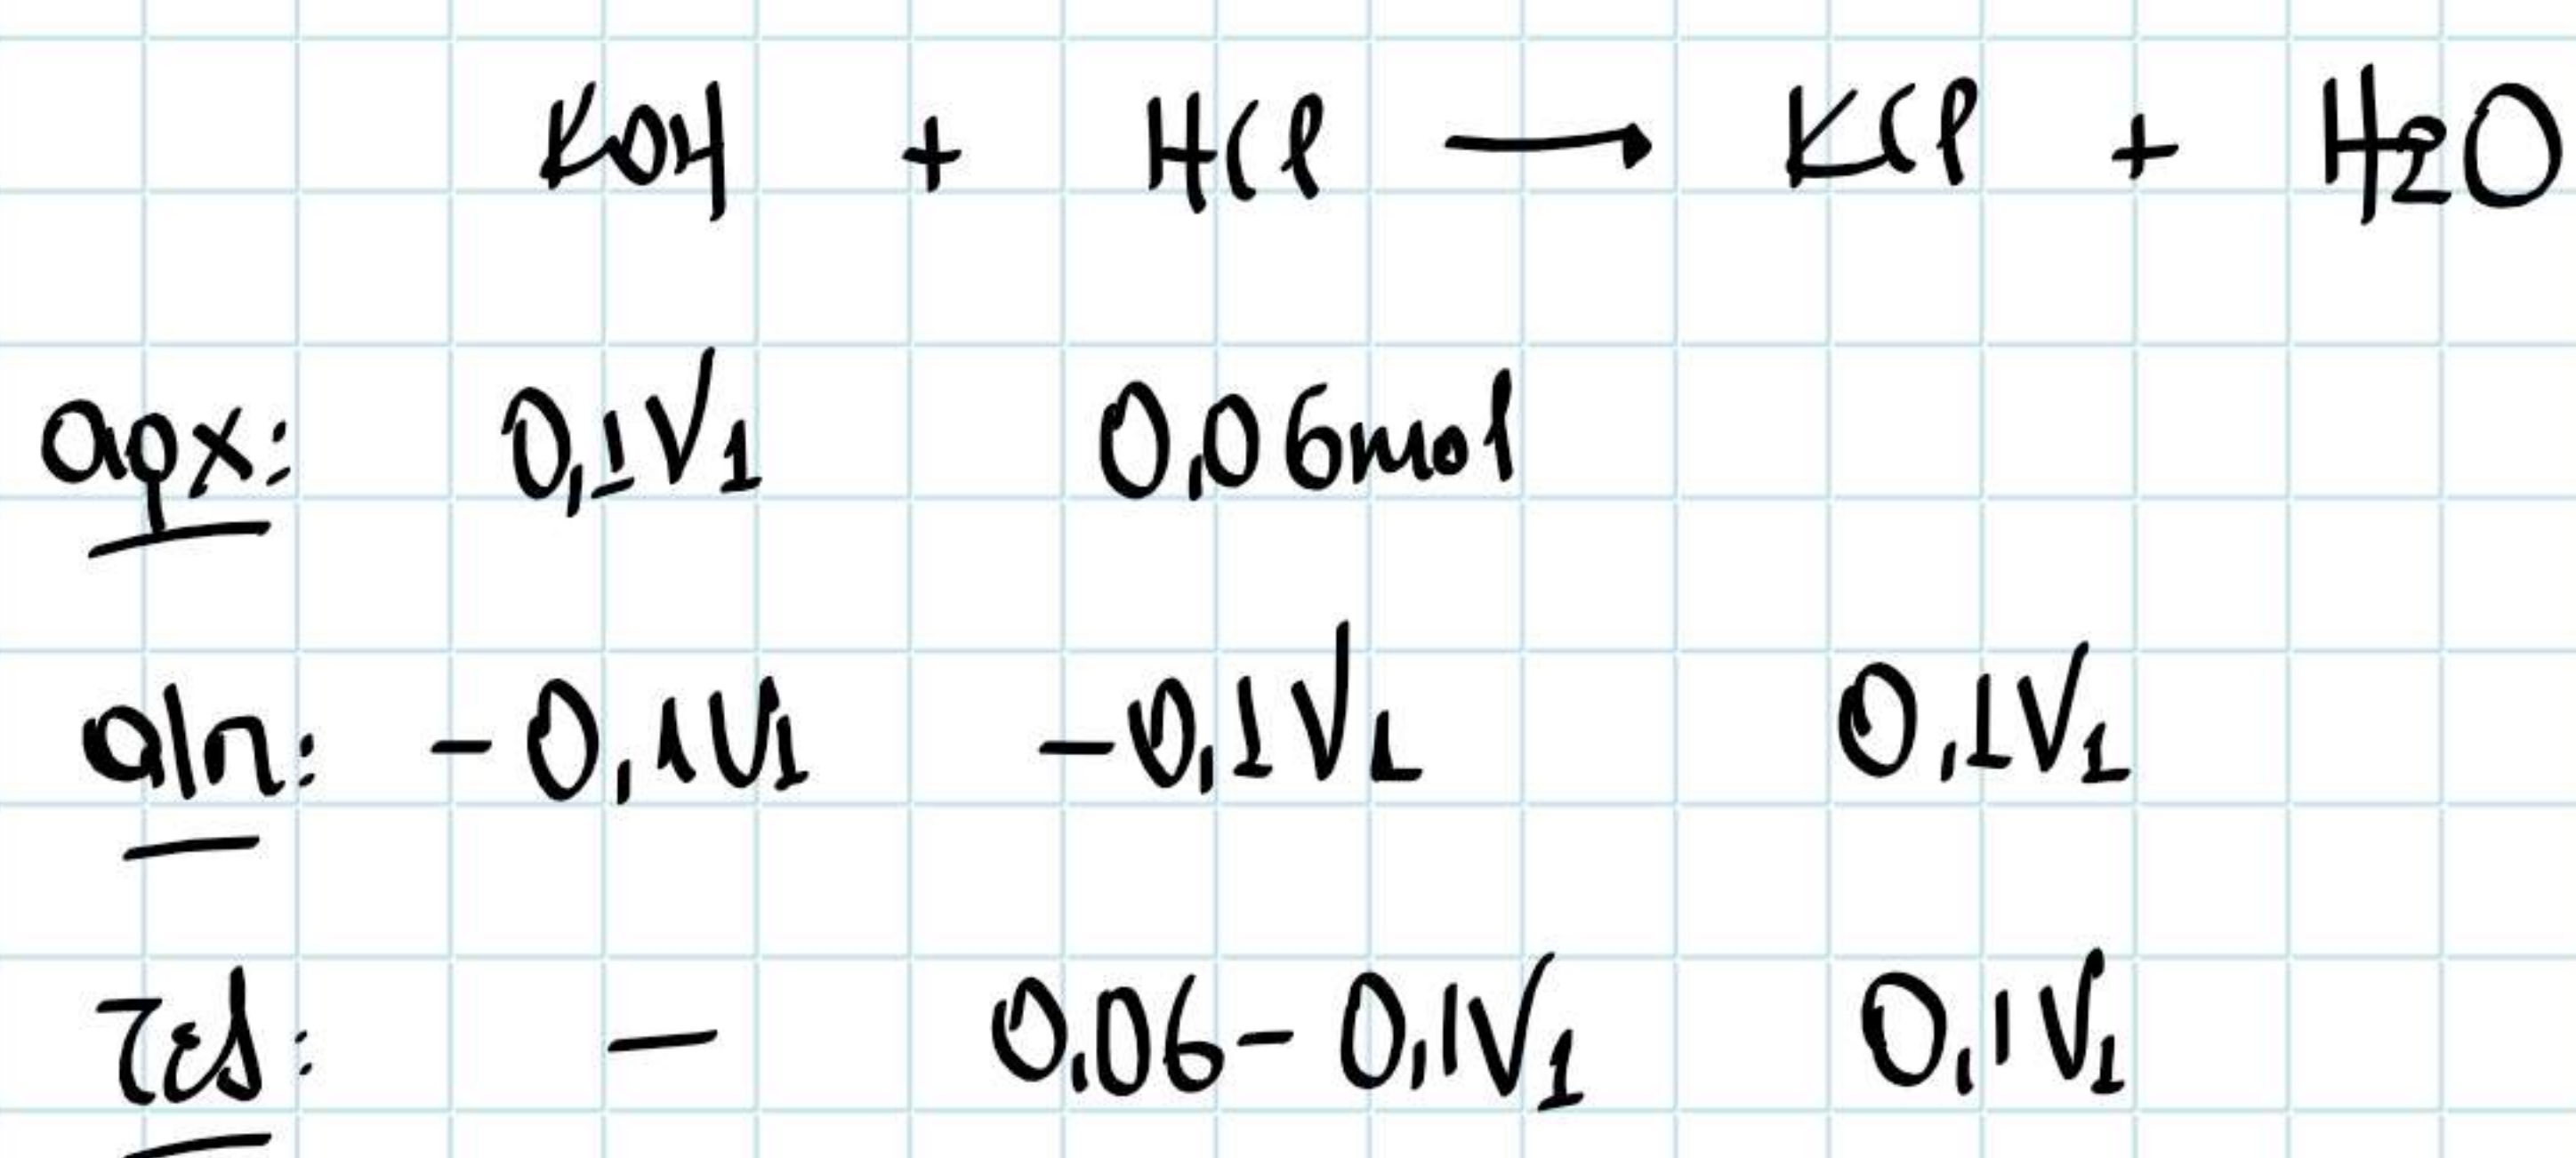 KOH + HCl → KCl + H2O
αρχ: 0,1V1 0,06mol
αλπ: -0,1V1 -0,1V1 0,1V1
τελ: — 0,06-0,1V1 0,1V1